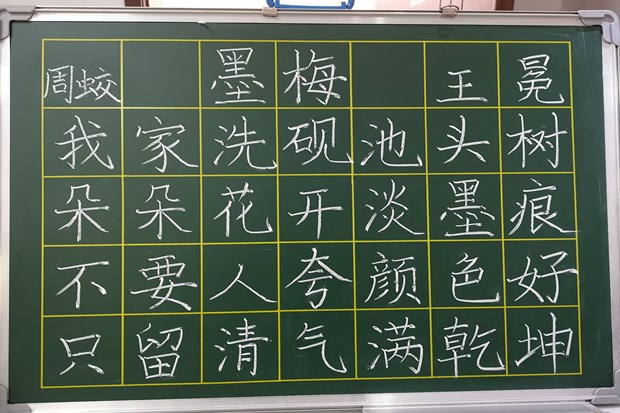 周蛟 墨梅 王冕
我家洗砚池头树
朵朵花开淡墨痕
不要人夸颜色好
只留清气满乾坤